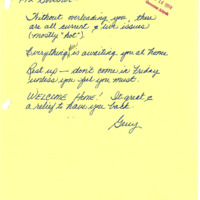 Without overloading you, there
are all current & live issues
(mostly "hot").
Everything is awaiting you at home
Rest up — don't come in Friday
unless you feel you must.
WELCOME HOME! It great &
a relief to have you back.
Guy